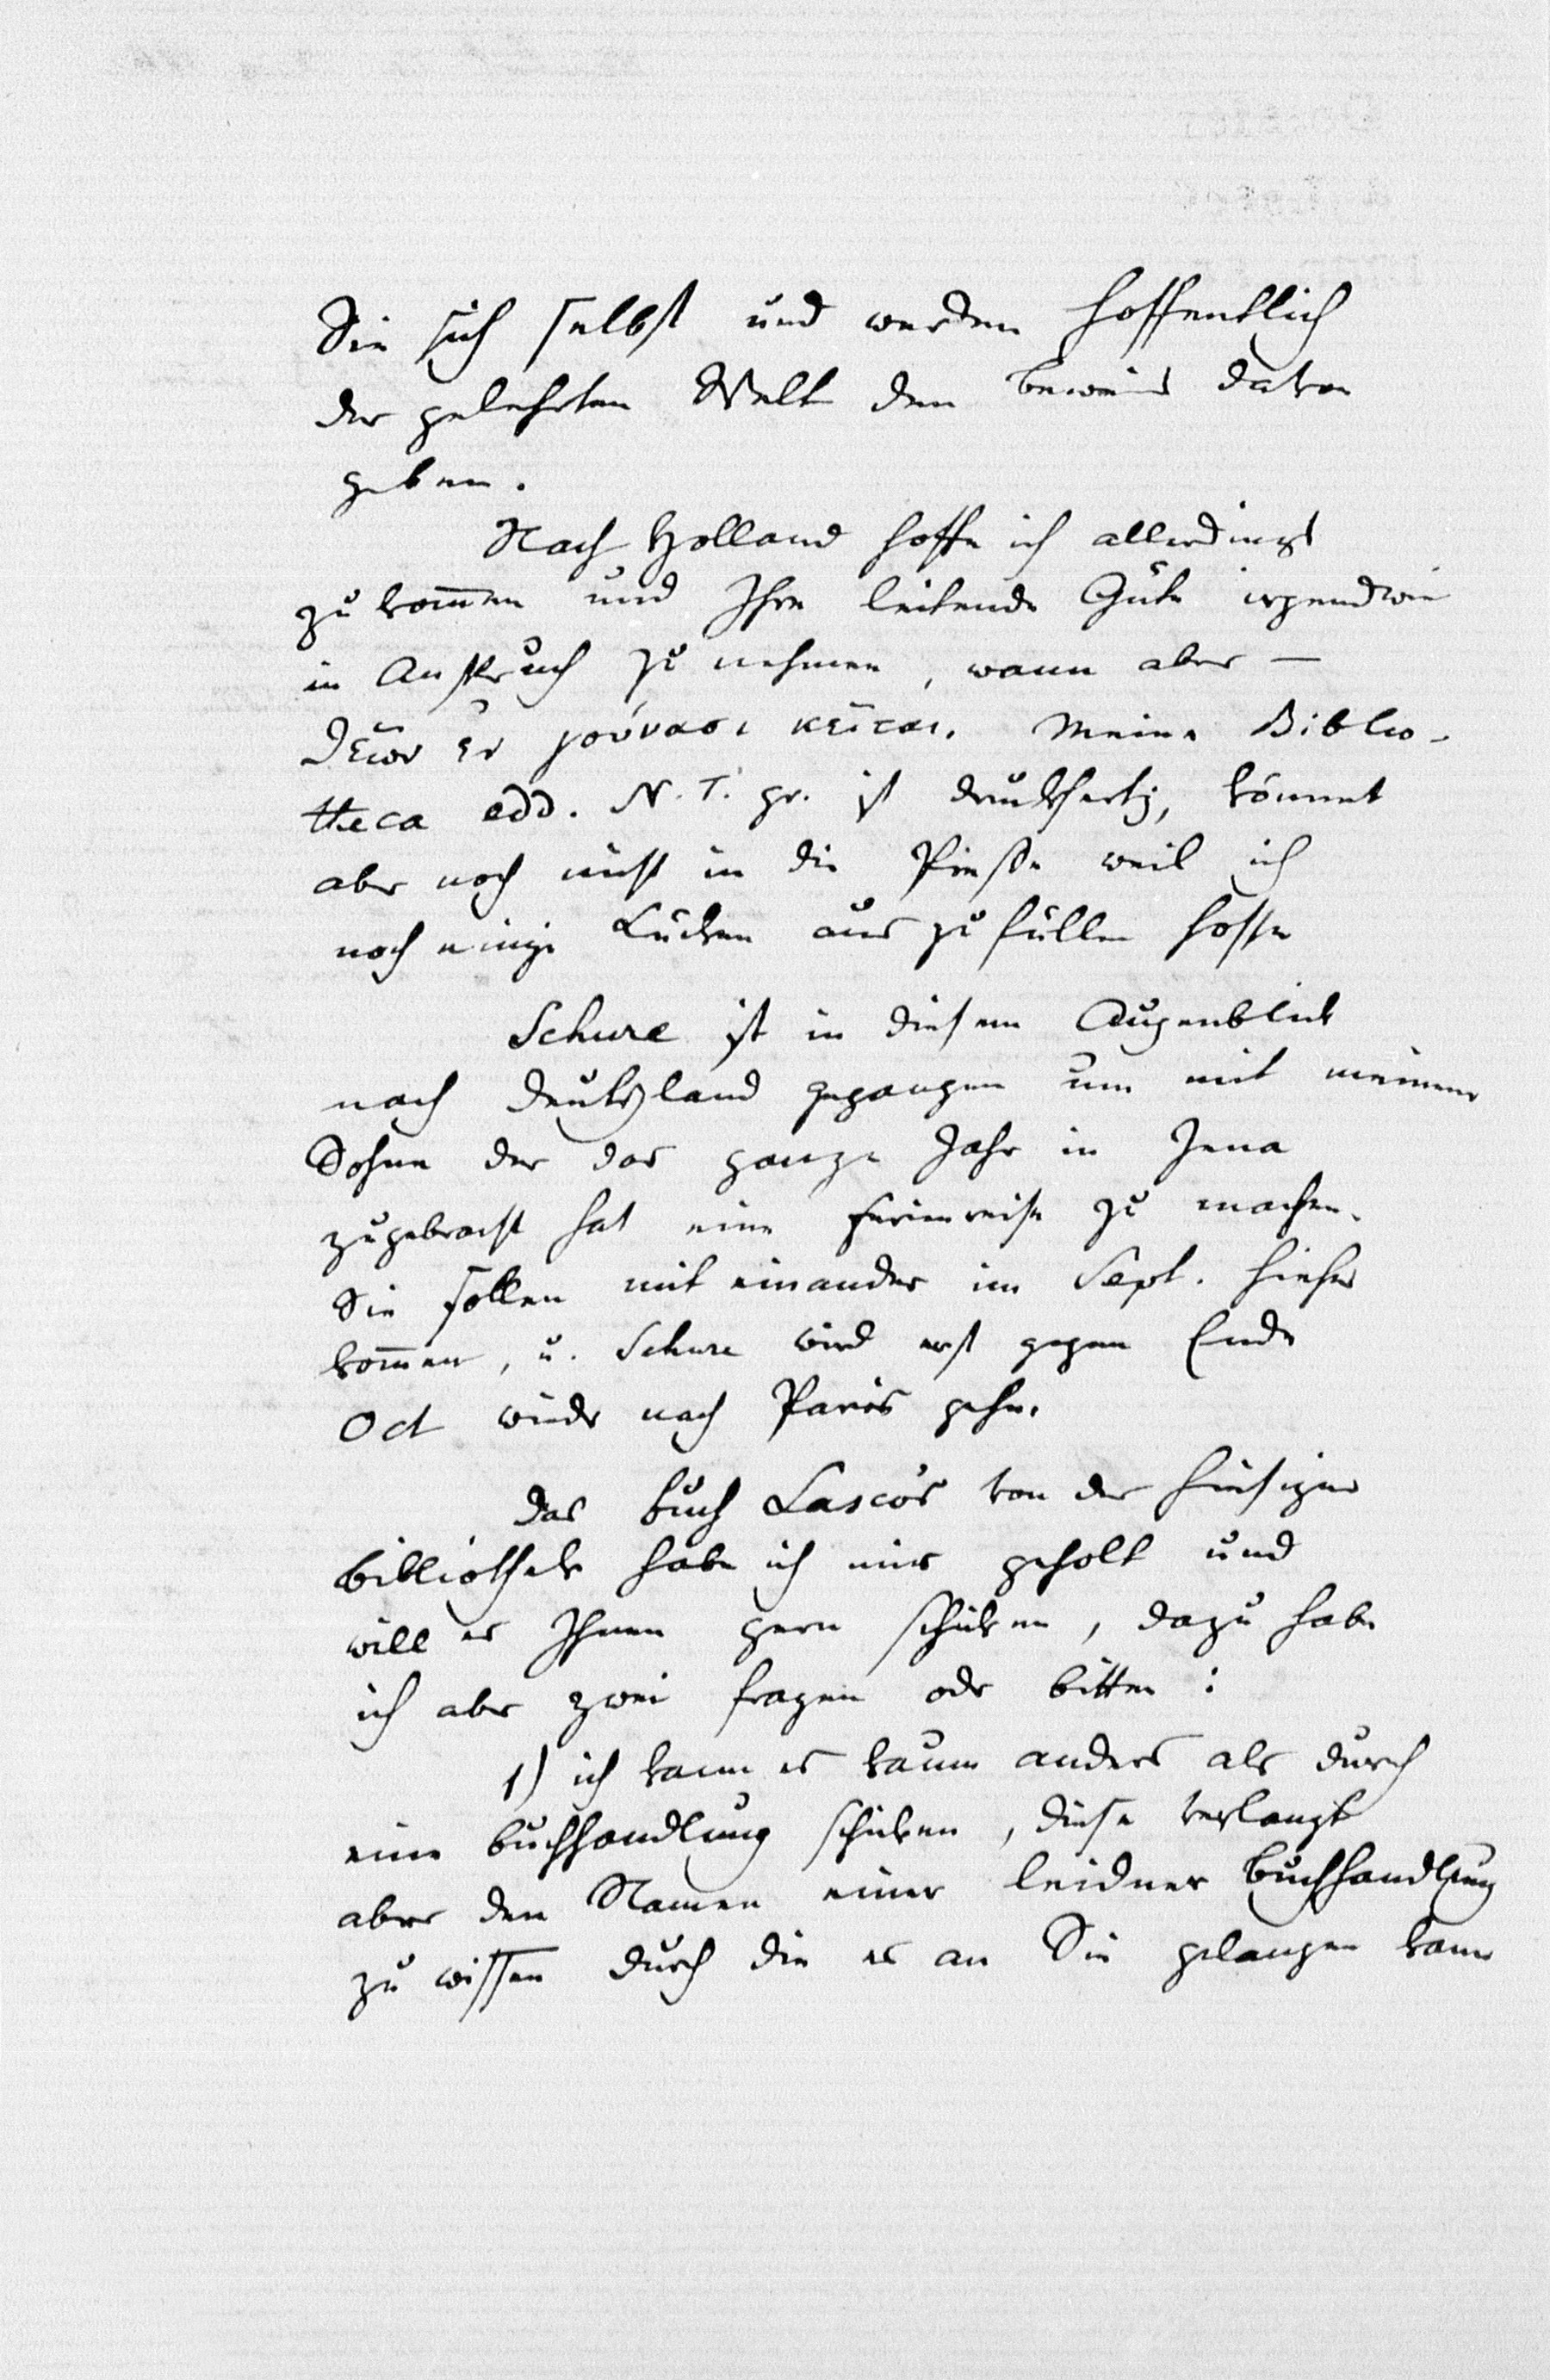 Sie sich selbst und werden hoffentlich
der gelehrten Welt den Beweis davon
geben.
Nach Holland hoffe ich allerdings
zu kom̄en und Ihre leitende Güte irgendwie
in Anspruch zu nehmen, wann aber —
θεῶν ἐν γούνασι κεῖται. Meine Biblio-
theca edd. N. T. gr. ist druckfertig, kömmt
aber noch nicht in die Presse weil ich
noch einige Lücken auszufüllen hoffe
Schure ist in diesem Augenblick
nach Deutschland gegangen um mit meinem
Sohne der das ganze Jahr in Jena
zugebracht hat eine Ferienreise zu machen.
Sie sollen mit einander im Sept. hieher
kom̄en, u. Schure wird erst gegen Ende
Oct wieder nach Paris gehn.
Das Buch Lasco's von der hiesigen
Bibliothek habe ich mir geholt und
will es Ihnen gern schicken, dazu habe
ich aber zwei Fragen oder Bitten:
1) ich kann es kaum anders als durch
eine Buchhandlung schicken, diese verlangt
aber den Namen einer leidner Buchhandlung
zu wissen durch die es an Sie gelangen kann